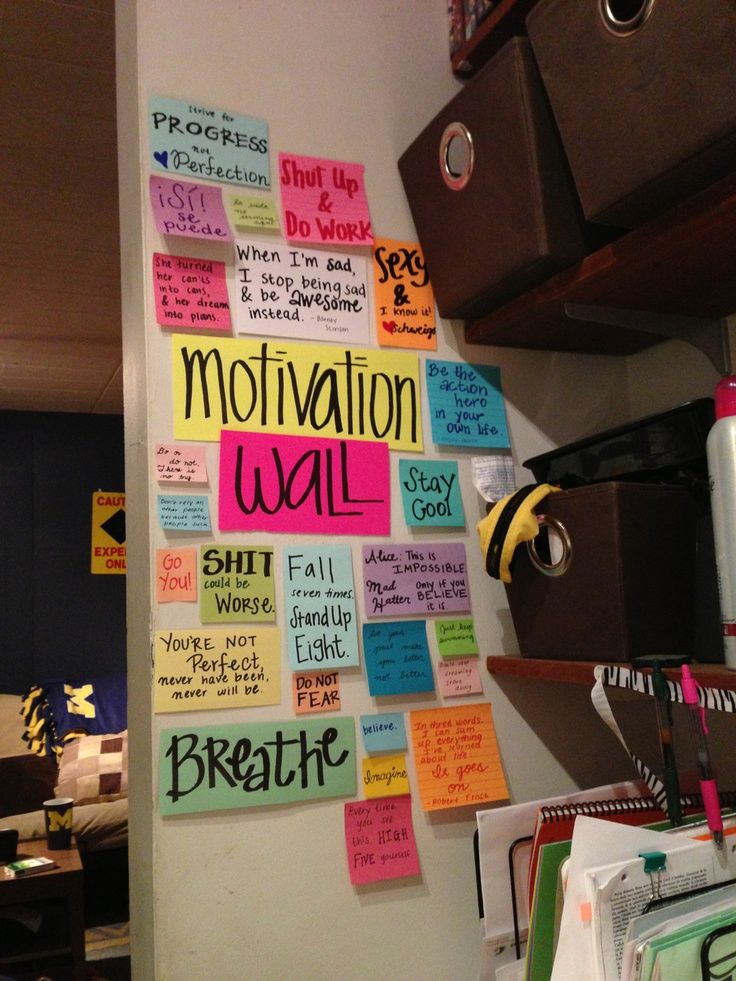 Strive for
PROGRESS
not
Perfection
¡Sí!
se
puede
la vida
no
Shut Up
&
Do Work
She turned
her can'ts
into cans,
& her dreams
into plans.
When I'm sad,
I stop being sad
& be awesome
instead. - Barney
Stinson
Sexy
&
I know it!
Schweigs
Motivation
Wall
Be the
action
hero
in your
own life.
Do or
do not.
There is
no try.
Don't rely on
other people
because other
people suck
Stay
Cool
Go
You!
SHIT
could be
Worse.
Fall
seven times.
Stand Up
Eight.
Alice: This is
IMPOSSIBLE
Mad Only if you
Hatter BELIEVE
it is.
YOU'RE NOT
Perfect,
never have been,
never will be.
DO NOT
FEAR
Let your
past make
you better
not bitter
Just keep
swimming
dreaming
start
doing
Breathe
believe.
Imagine
In three words.
I can sum
up everything
I've learned
about life:
It goes
on.
- Robert Frost
Every time
you see
this, HIGH
FIVE yourself
CAUT
EXPE
ONL
M
M